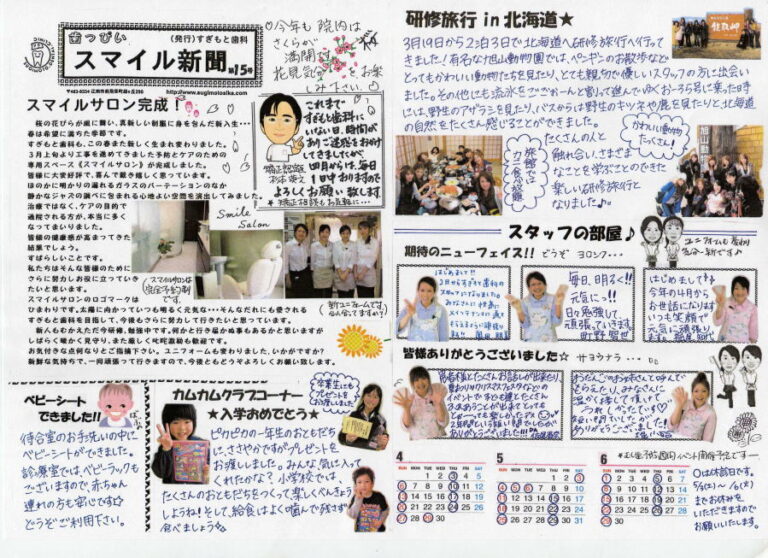 歯っぴい
(発行)すぎもと歯科
スマイル新聞
第15号
http://www.sugimotosika.com
今年も院内は
さくらが
満開です
花見気分をお楽
しみ下さい。
スマイルサロン完成!
桜の花びらが歯に舞い、真新しい制服に身を包んだ新入生…
春は希望に満ちた季節です。
すぎもと歯科も、この春また新しく生まれ変わりました。
3月上旬より工事を進めてきました予防とケアのための
専用スペース《スマイルサロン》が完成しました。
皆様に大変好評で、喜んで戴き嬉しく思っています。
ほのかに明かりの漏れるガラスのパーテーションのなか
静かなジャズの調べに包まれる心地よい空間を演出してみました。
治療ではなく、ケアの目的で
通院される方が、本当に多く
なってまいりました。
皆様の健康感が高まってきた
結果でしょう。
すばらしいことです。
私たちはそんな皆様のために
さらに努力しお役に立っていき
たいと思います。
スマイルサロンのロゴマークは
ひまわりです。太陽に向かっていつも明るく元気な…そんなだれにも愛される
すぎもと歯科を目指して、今後もさらに努力して行きたいと思っています。
新人もむかえただ今研修、勉強中です。何かと行き届かぬ事もあるかと思いますが
しばらく暖かく見守り、また厳しく叱咤激励も歓迎です。
お気付きな点何なりとご指摘下さい。ユニフォームも変わりました。いかがですか?
新鮮な気持ちで、一同頑張って行きますので、今後ともどうぞよろしくお願い致します。
これまで
すぎもと歯科に
いない日、時間が
ありご迷惑をおかけ
してきましたが
四月からは、毎日
1日中おりますので
よろしくお願い致します
Smile
Salon
スマイルサロンは
完全予約制
です。
新ユニフォームです。
似合ってますか?
ベビーシート
できました!!
待合室のお手洗いの中に
ベビーシートができました。
診療室では、ベビーラックも
ございますので、赤ちゃん
連れの方も安心です☆
どうぞご利用下さい。
カムカムクラブコーナー
★入学おめでとう★
卒業生にも
プレゼントを
お渡ししました
ピカピカの一年生のおともだち
に、ささやかですがプレゼントを
お渡ししました。みんな、気に入って
くれたかな?小学校では、
たくさんのおともだちをつくって楽しくべんきょう
しようね!そして、給食はよく噛んで残さず
食べましょう
研修旅行in北海道★
3月19日から2泊3日で北海道へ研修旅行へ行って
きました!有名な旭山動物園では、ペンギンのお散歩など
とってもかわいい動物たちを見たり、とても親切で優しいスタッフの方に出会い
ました。その他にも流氷をごーかーんと割って進んでゆくおーろら号に乗った時
には、野生のアザラシを見たり、バスからは野生のキツネや鹿を見たりと北海道
の自然をたくさん感じることができました。
たくさんの人と
触れ合い、さまざま
なことを学ぶことのできた
楽しい研修旅行と
なりました♪。
かわいい動物
たくさん!
旅館では
カニ食べ放題
スタッフの部屋♪
ユニフォームも
期待のニューフェイス!! どうぞ ヨロシク…
はじめまして!!
毎日、明るく!!
元気に。!!
日々勉強して
頑張っていきます。
はじめまして
今年の4月から
お世話になります
いつも笑顔で
元気に頑張り
ます。
皆様ありがとうございました☆ サヨウナラ…
4
5
6
SUN MON TUE WED THU FRI SAT
○は休診日です。
5/3(土)~/6(火)
までお休みを
いただきますので
お願いいたします。